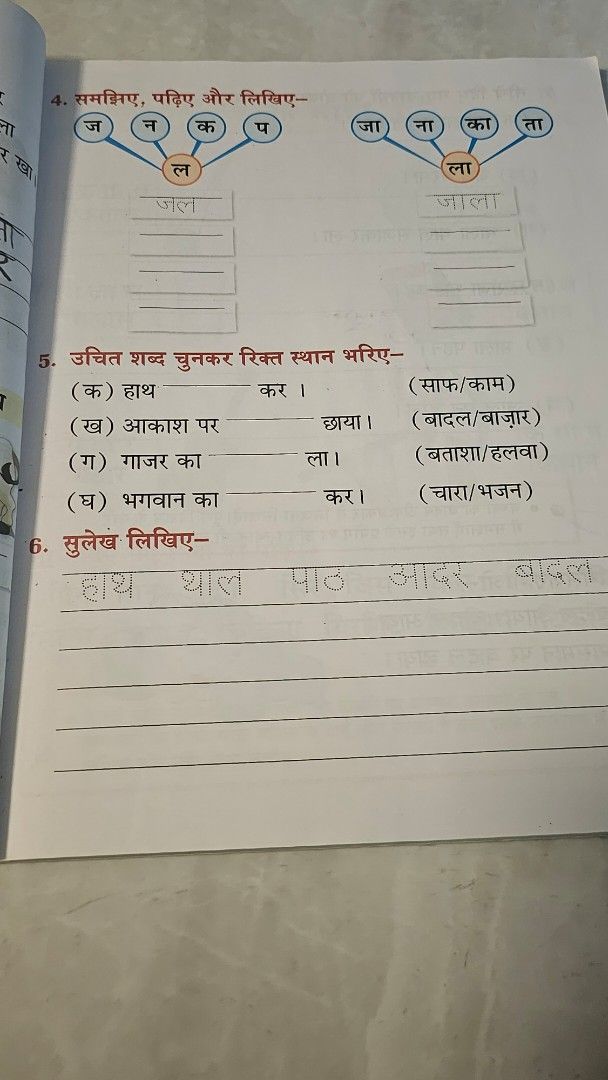 4. समझिए, पढ़िए और लिखिए–
ज न क प जा ना का ता
ल ला
जल जाला
5. उचित शब्द चुनकर रिक्त स्थान भरिए–
(क) हाथ कर । (साफ/काम)
(ख) आकाश पर छाया। (बादल/बाज़ार)
(ग) गाजर का ला। (बताशा/हलवा)
(घ) भगवान का कर। (चारा/भजन)
6. सुलेख लिखिए–
हाथ थाल पाठ आदर बादल